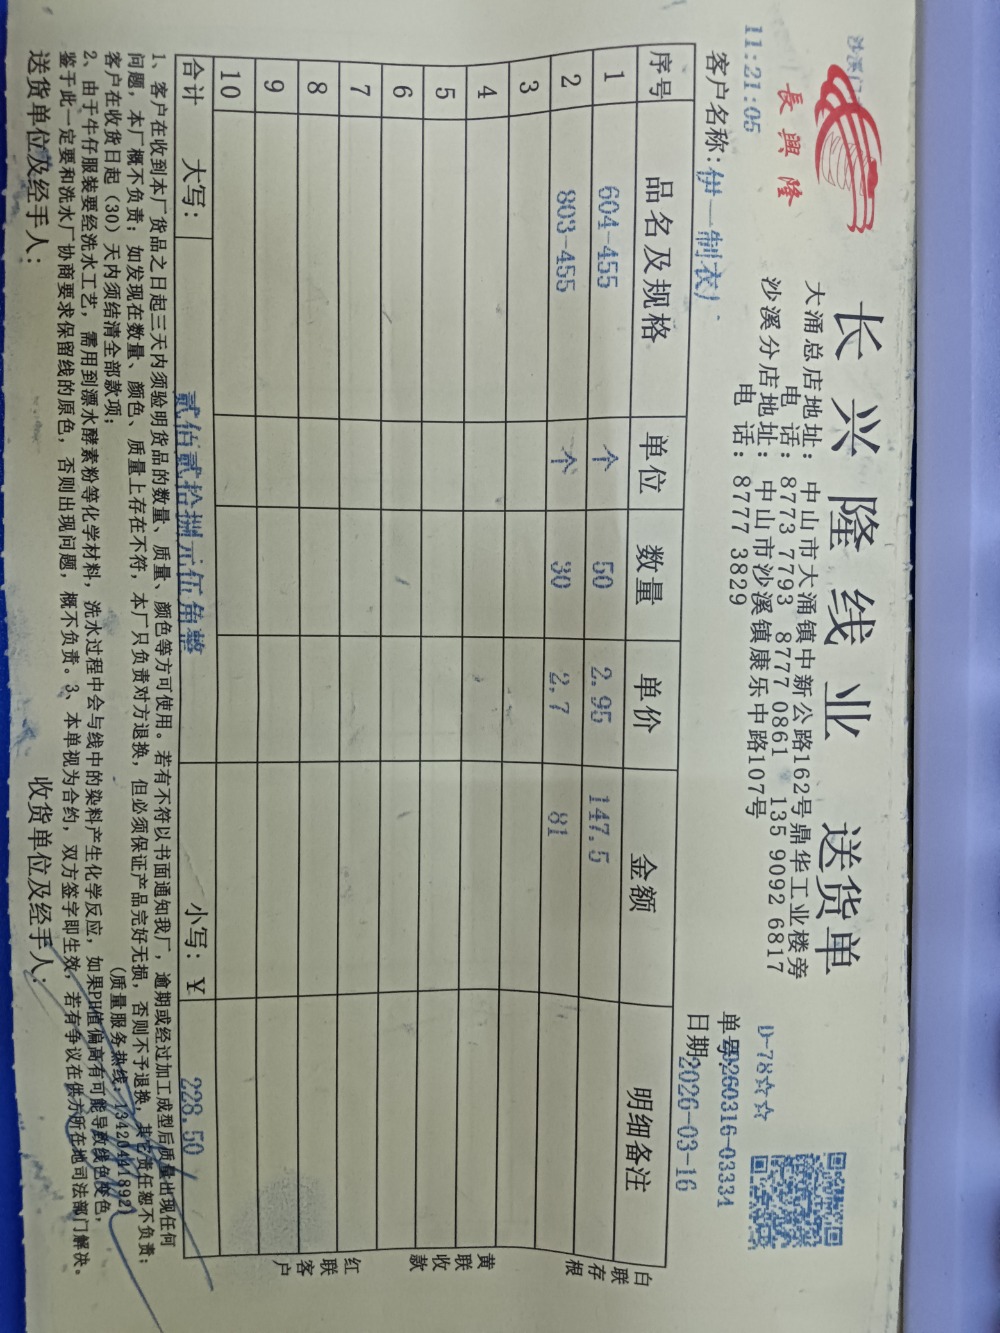 沙溪
長興隆
长兴隆线业 送货单
大涌总店地址：中山市大涌镇中新公路162号鼎华工业楼旁
电 话：8773 7793 8777 0861 135 9092 6817
沙溪分店地址：中山市沙溪镇康乐中路107号
电 话：8777 3829
D-78☆☆
11:21:05
单号:20260316-03334
客户名称：伊一制衣厂
日期:2026-03-16
序号 品名及规格 单位 数量 单价 金额 明细备注
1 604-455 个 50 2.95 147.5
2 803-455 个 30 2.7 81
3
4
5
6
7
8
9
10
合计 大写： 贰佰贰拾捌元伍角整 小写：￥ 228.50
白联存根
黄联收款
红联客户
1、客户在收到本厂货品之日起三天内须验明货品的数量、质量、颜色等方可使用。若有不符以书面通知我厂，逾期或经过加工成型后质量出现任何
问题，本厂概不负责；如发现在数量、颜色、质量上存在不符，本厂只负责对方退换，但必须保证产品完好无损，否则不予退换，其它责任恕不负责；
客户在收货日起（30）天内须结清全部款项； (质量服务热线：13420441892)
2、由于牛仔服装要经洗水工艺，需用到漂水酵素粉等化学材料，洗水过程中会与线中的染料产生化学反应，如果PH值偏高有可能导致线色变色，
鉴于此一定要和洗水厂协商要求保留线的原色，否则出现问题，概不负责。3、本单视为合约，双方签字即生效，若有争议在供方所在地司法部门解决。
送货单位及经手人： 收货单位及经手人：